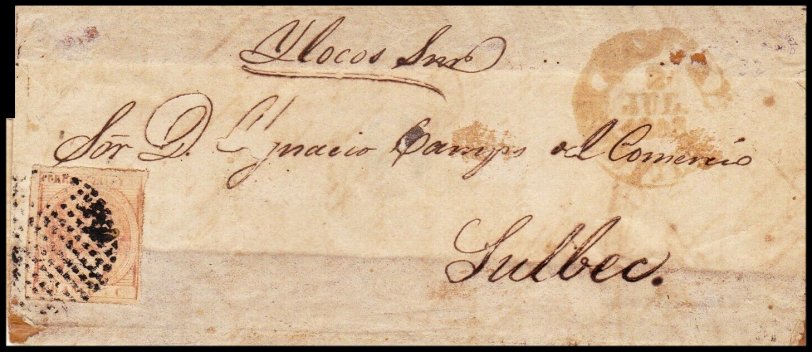 Ylocos Sur
Sór D. Ygnacio Camps del Comercio
Sulbec.
JUL